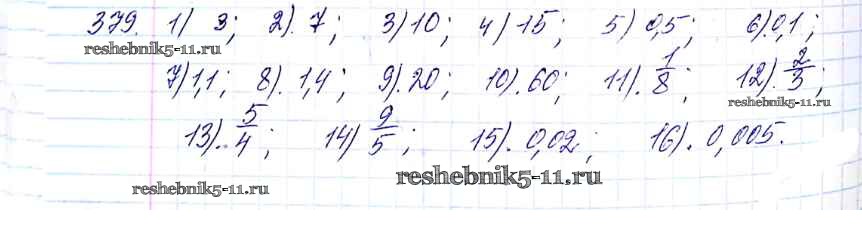 379. 1) 3; 2). 7; 3) 10; 4) 15; 5) 0,5; 6). 0,1;
reshebnik5-11.ru
7) 1,1; 8). 1,4; 9). 20; 10). 60; 11). 1/8; 12). 2/3;
reshebnik5-11.ru
13). 5/4; 14) 9/5; 15). 0,02; 16). 0,005.
reshebnik5-11.ru
reshebnik5-11.ru